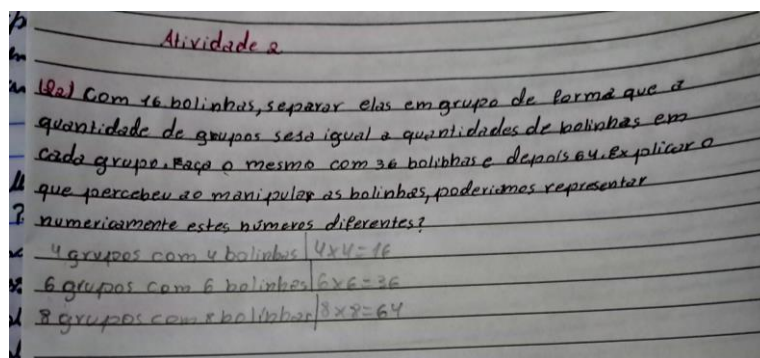 Atividade 2
(Q2) Com 16 bolinhas, separar elas em grupo de forma que a
quantidade de grupos seja igual a quantidades de bolinhas em
cada grupo. Faça o mesmo com 36 bolibhas e depois 64. Explicar o
que percebeu ao manipular as bolinhas, poderiamos representar
numericamente estes números diferentes?
4 grupos com 4 bolinhas | 4x4=16
6 grupos com 6 bolinhas | 6x6=36
8 grupos com 8 bolinhas | 8x8=64